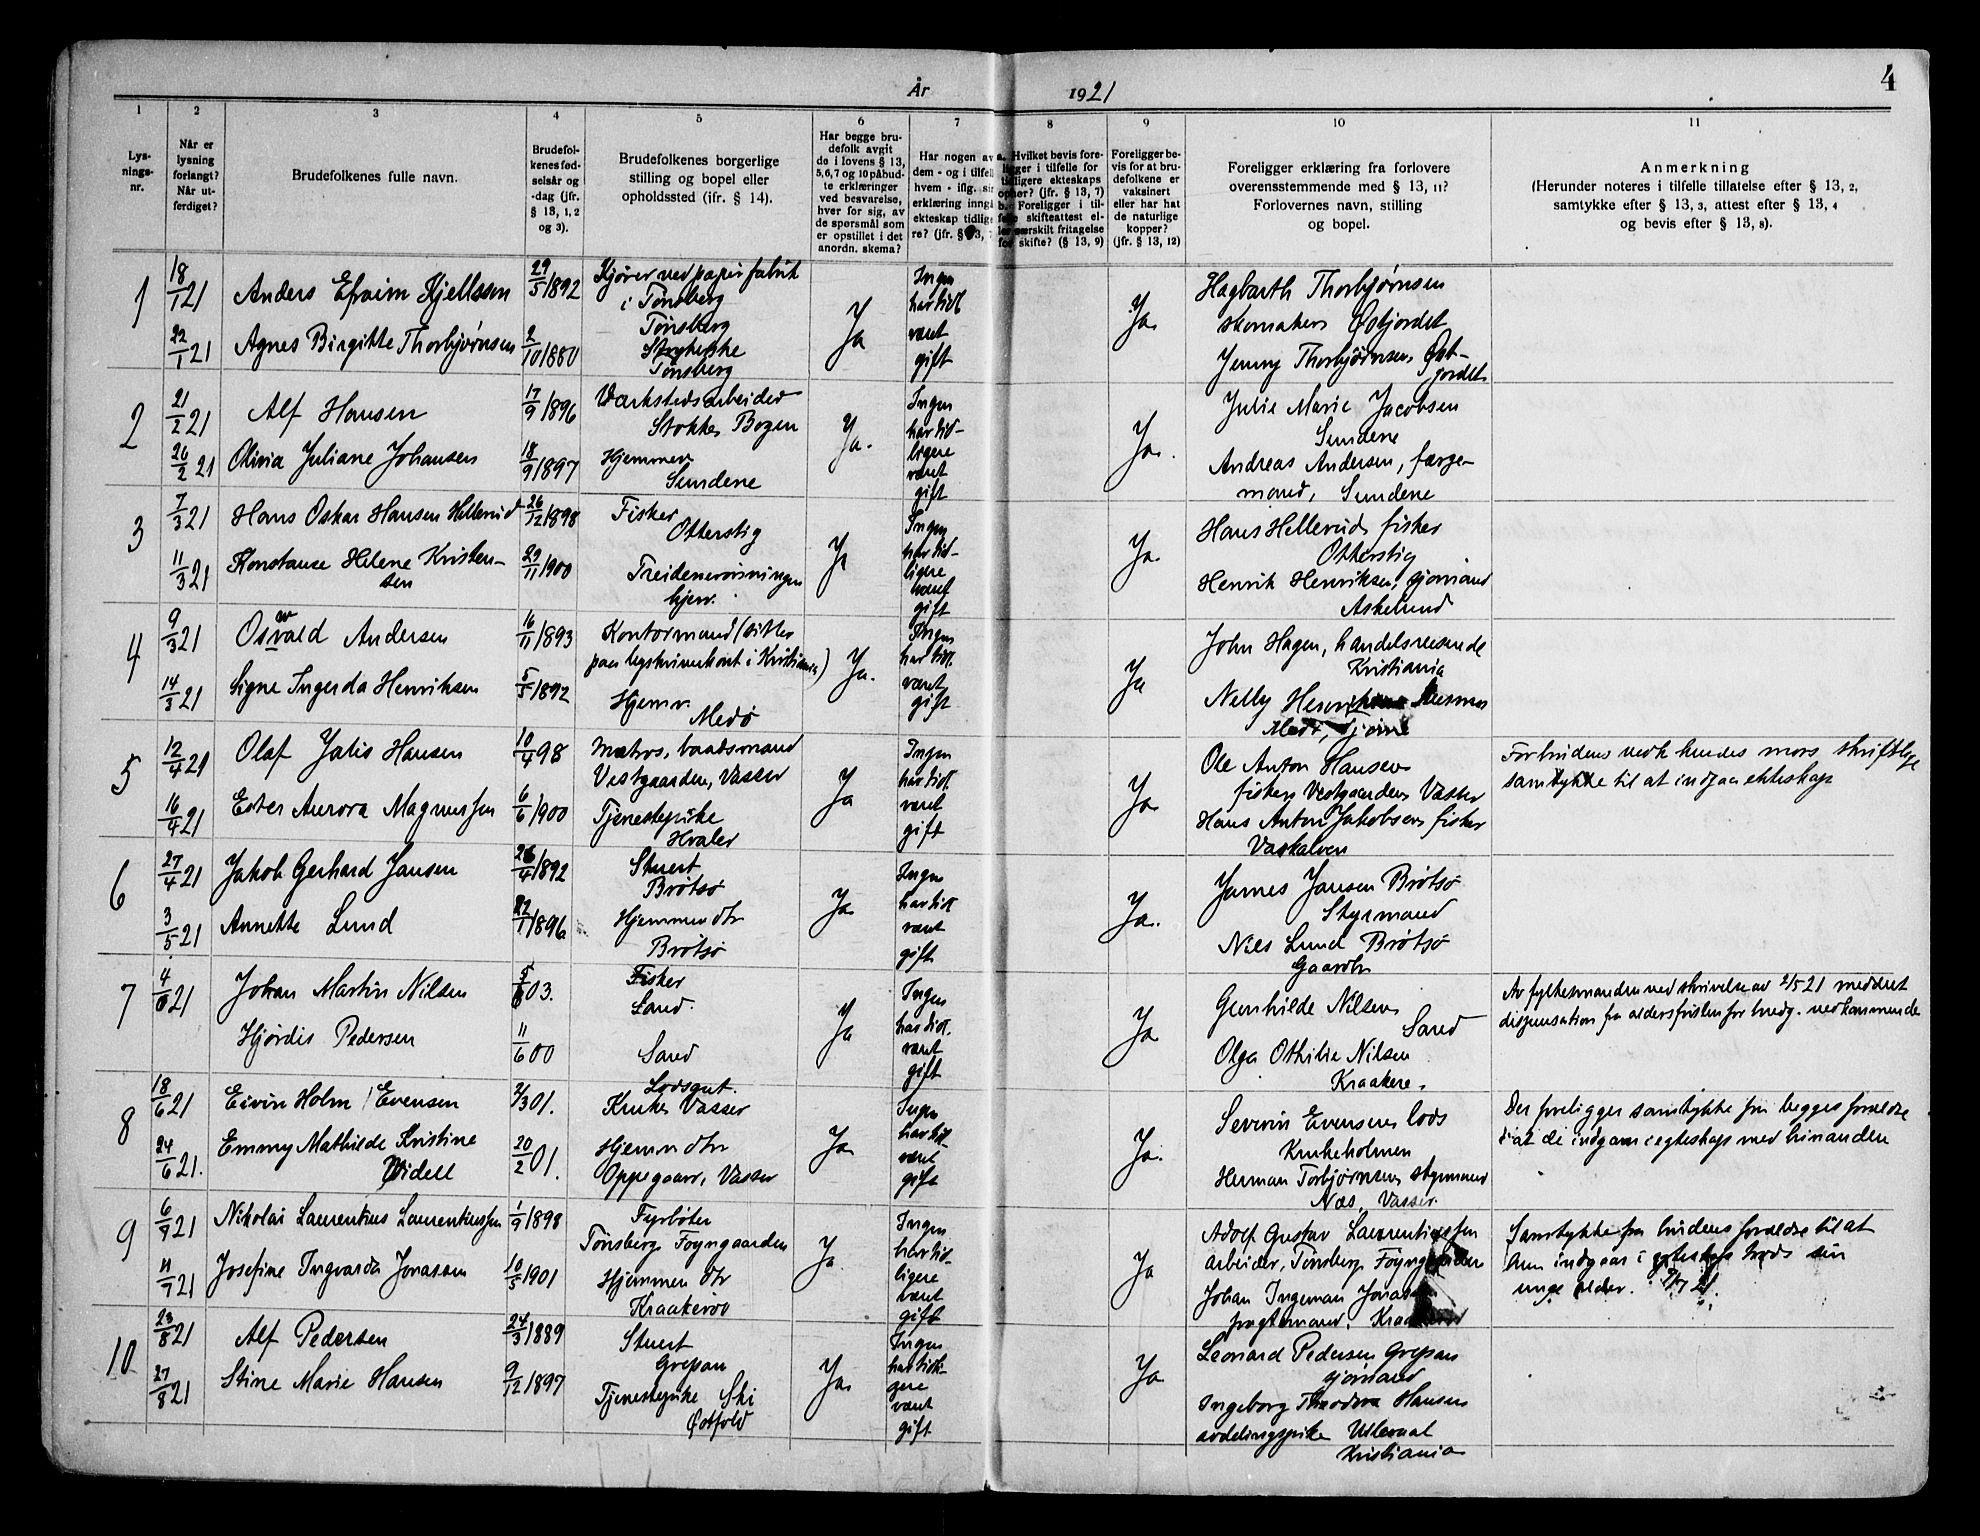 År 1921
4
1 2 3 4 5 6 7 8 9 10 11
Lys-
nings-
nr.
Når er
lysning
forlangt?
Når ut-
ferdiget?
Brudefolkenes fulle navn.
Brudefol-
kenes fød-
selsår og
-dag (jfr.
§ 13, 1, 2
og 3).
Brudefolkenes borgerlige
stilling og bopel eller
opholdssted (ifr. § 14).
Har begge bru-
defolk avgit
de i lovens § 13,
5, 6, 7 og 10 påbud-
te erklæringer
ved besvarelse,
hver for sig, av
de spørsmål som
er opstillet i det
anordn. skema?
Har nogen av
dem - og i tilfelle
hvem - iflg. sin
erklæring inngå
ekteskap tidlige
re? (jfr. § 13, 7
a. Hvilket bevis fore-
ligger i tilfelle for
tidligere ekteskaps
ophør? (jfr. § 13, 7)
b. Foreligger i til-
felle skifteattest el-
ler særskilt fritagelse
for skifte? (§ 13, 9)
Foreligger be-
vis for at bru-
defolkene er
vaksinert
eller har hat
de naturlige
kopper?
(jfr. § 13, 12)
Foreligger erklæring fra forlovere
overensstemmende med § 13, 11?
Forlovernes navn, stilling
og bopel.
Anmerkning
(Herunder noteres i tilfelle tillatelse efter § 13, 2,
samtykke efter § 13, 3, attest efter § 13, 4
og bevis efter § 13, 8).
1
18/1 21 Anders Efraim Kjellsson 29/5 1892 Kjører ved papirfabrik
i Tønsberg
Tønsberg
22/1 21 Agnes Birgitte Thorbjørnsen 2/10 1880 Strykerske
Tønsberg
Ja
Ingen
har tidl
været
gift
Ja
Hagbarth Thorbjørnsen
skomaker Østjordet
Jenny Thorbjørnsen Øst-
jordet
2
21/2 21 Alf Hansen 17/9 1896 Værkstedsarbeider
Stokke, Bogen
26/2 21 Olivia Juliane Johansen 18/9 1897 Hjemmev
Sundene
Ja.
Ingen
har tid-
ligere
været
gift
Ja.
Julie Marie Jacobsen
Sundene
Andreas Andersen, færge-
mand, Sundene
3
7/3 21 Hans Oskar Hansen Hellerud 26/12 1898 Fisker
Otterstig
11/3 21 Konstanse Helene Kristen-
sen 29/11 1900
hjemv.
Ja
Ingen
har tid-
ligere
været
gift
Ja
Hans Hellerud fisker
Otterstig
Henrik Henriksen, sjømand
Askelund
4
9/3 21 Osvald Andersen 16/11 1893 Kontormand
14/3 21 Signe Ingerda Henriksen 5/5 1892 Hjemv.
Medø
Ja.
Ingen
har tidl.
været
gift
Ja
John Hagen, handelsreisende
Kristiania
Nelly
Medø, Tjøme
5
12/4 21 Olaf Julis Hansen 10/4 98 Matros, baadsmand
Vestgaarden, Vasser
16/4 21 Ester Aurora Magnussen 6/6 1900 Tjenestepike
Hvaler
Ja
Ingen
har tidl.
været
gift
Ja
Ole Anton Hansen
fisker Vestgaarden Vasser
Hans Anton Jakobsen fisker
Vaskalven
Forbruden vedk hendes mors skriftlige
samtykke til at indgaa ekteskap
6
27/4 21 Jakob Gerhard Jansen 26/4 1892 Stuert
Brøtsø
3/5 21 Annette Lund 22/1 1896 Hjemmev dtr
Brøtsø
Ja
Ingen
har tidl
været
gift
Ja.
James Jansen Brøtsø
Styrmand
Nils Lund Brøtsø
Gaardbr
7
4/6 21 Johan Martin Nilsen 5/6 03. Fisker
Sand.
Hjørdis Pedersen 11/6 00 Sand
Ja
Ingen
har tidl.
været
gift
Ja
Gunhilde Nilsen
Sand
Olga Othilie Nilsen
Kraakere.
Av fylkesmanden ved skrivelse av 2/5 21 meddelt
dispensation fra aldersfristen for brudg. vedkommende
8
18/6 21 Eivin Holm Evensen 2/3 01. Lodsgut.
Kruke Vasser
24/6 21. Emmy Mathilde Kristine
Widell 20/2 01. Hjemmv dtr
Oppegaard, Vasser
Ja
Ingen
har tidl.
været
gift
Ja.
Severin Evensen lods
Krukeholmen
Herman Torbjørnsen styrmand
Næs, Vasser.
Der foreligger samtykke fra begges forældre
til at de indgaar i egteskap med hinanden
9
6/7 21 Nikolai Laurentius Laurentiussen 1/9 1898 Fyrbøter
Tønsberg Foyngaarden
11/7 21 Josefine Ingvarda Jonassen 10/5 1901 Hjemmev dtr
Kraakerøv
Ja
Ingen
har tid-
ligere
været
gift
Ja
Adolf Gustav Laurentiussen
arbeider, Tønsberg
Johan Ingeman
Samtykke fra brudens forældre til at
hun indgaar i egteskap trods sin
unge alder.
10
23/8 21 Alf Pedersen 24/3 1889 Stuert
Grepan
27/8 21 Stine Marie Hansen 9/12 1897 Tjenestepike Ski
Østfold
Ja
Ingen
har tidli-
gere
været
gift
Ja
Leonard Pedersen Grepan
sjømand
Ingeborg Theodora Hansen
avdelingspike Ullevaal
Kristiania